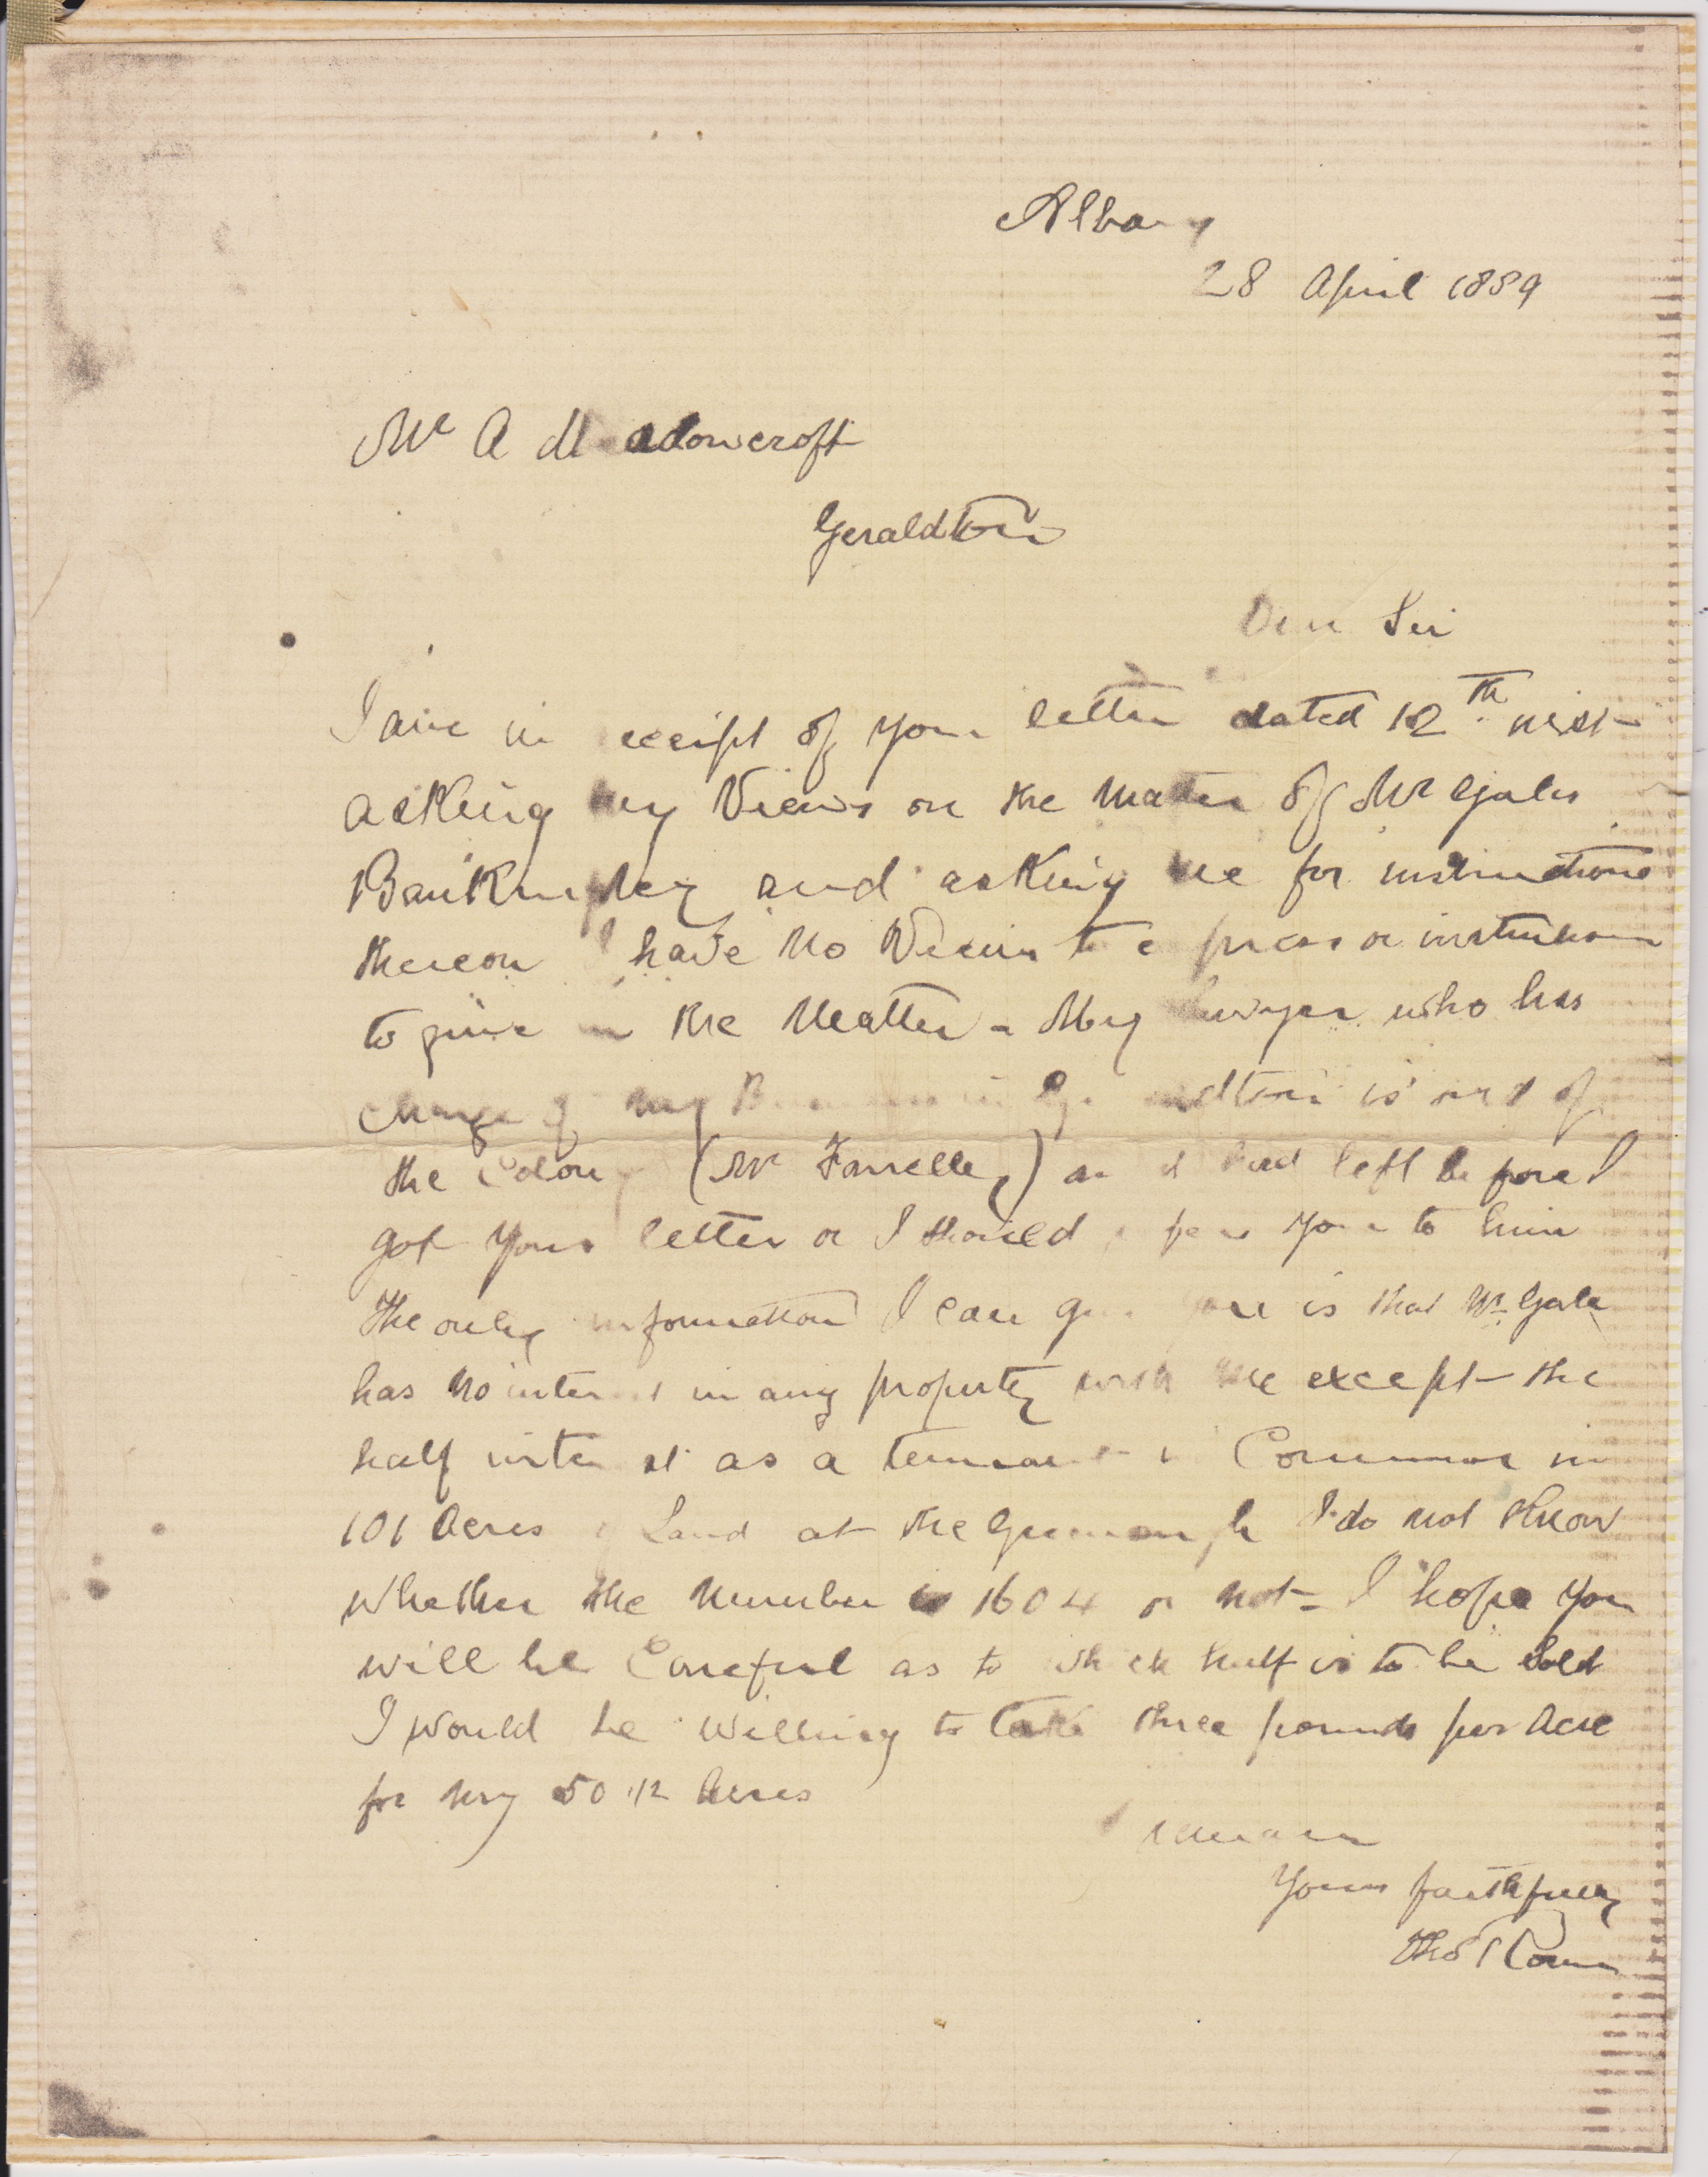 Albany
28 April 1889
Mr A Meadowcroft
Geraldton
Dear Sir
I am in receipt of your letter dated 12th inst
asking my Views on the Matter of Mr Gales
Bankruptcy and asking me for instructions
thereon I have No Views to express or instructions
to give in the Matter - My Lawyer who has
charge of my Business in Geraldton is out of
the Colony (Mr Farrelly) and had left before I
got your letter or I should refer you to him
The only information I can give you is that Mr Gale
has No interest in any property with me except the
half interest as a tennant in Common in
101 Acres of Land at the Greenough I do not Know
Whether the Number is 1604 or not - I hope You
will be Careful as to which half is to be Sold
I would be Willing to take three pounds per Acre
for my 50 1/2 Acres
I remain
Yours faithfully
Thos